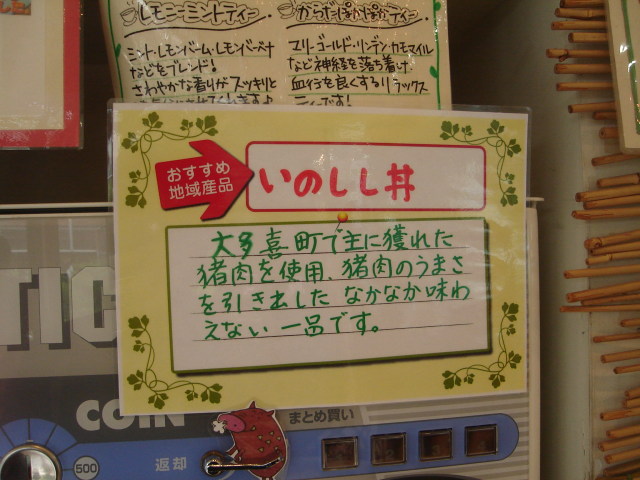 レモニーミントティー
ミント・レモンバーム・レモンバーベナ
などをブレンド!
さわやかな香りがスッキリと
からだぽかぽかティー
ユリ・ゴールド・リンデン・カモマイル
など神経を落ち着け
血行を良くするリラックス
ティーです!
おすすめ
地域産品
いのしし丼
大多喜町で主に獲れた
猪肉を使用、猪肉のうまさ
を引き出した なかなか味わ
えない 一品です。
TIC
COIN
まとめ買い
500
返却